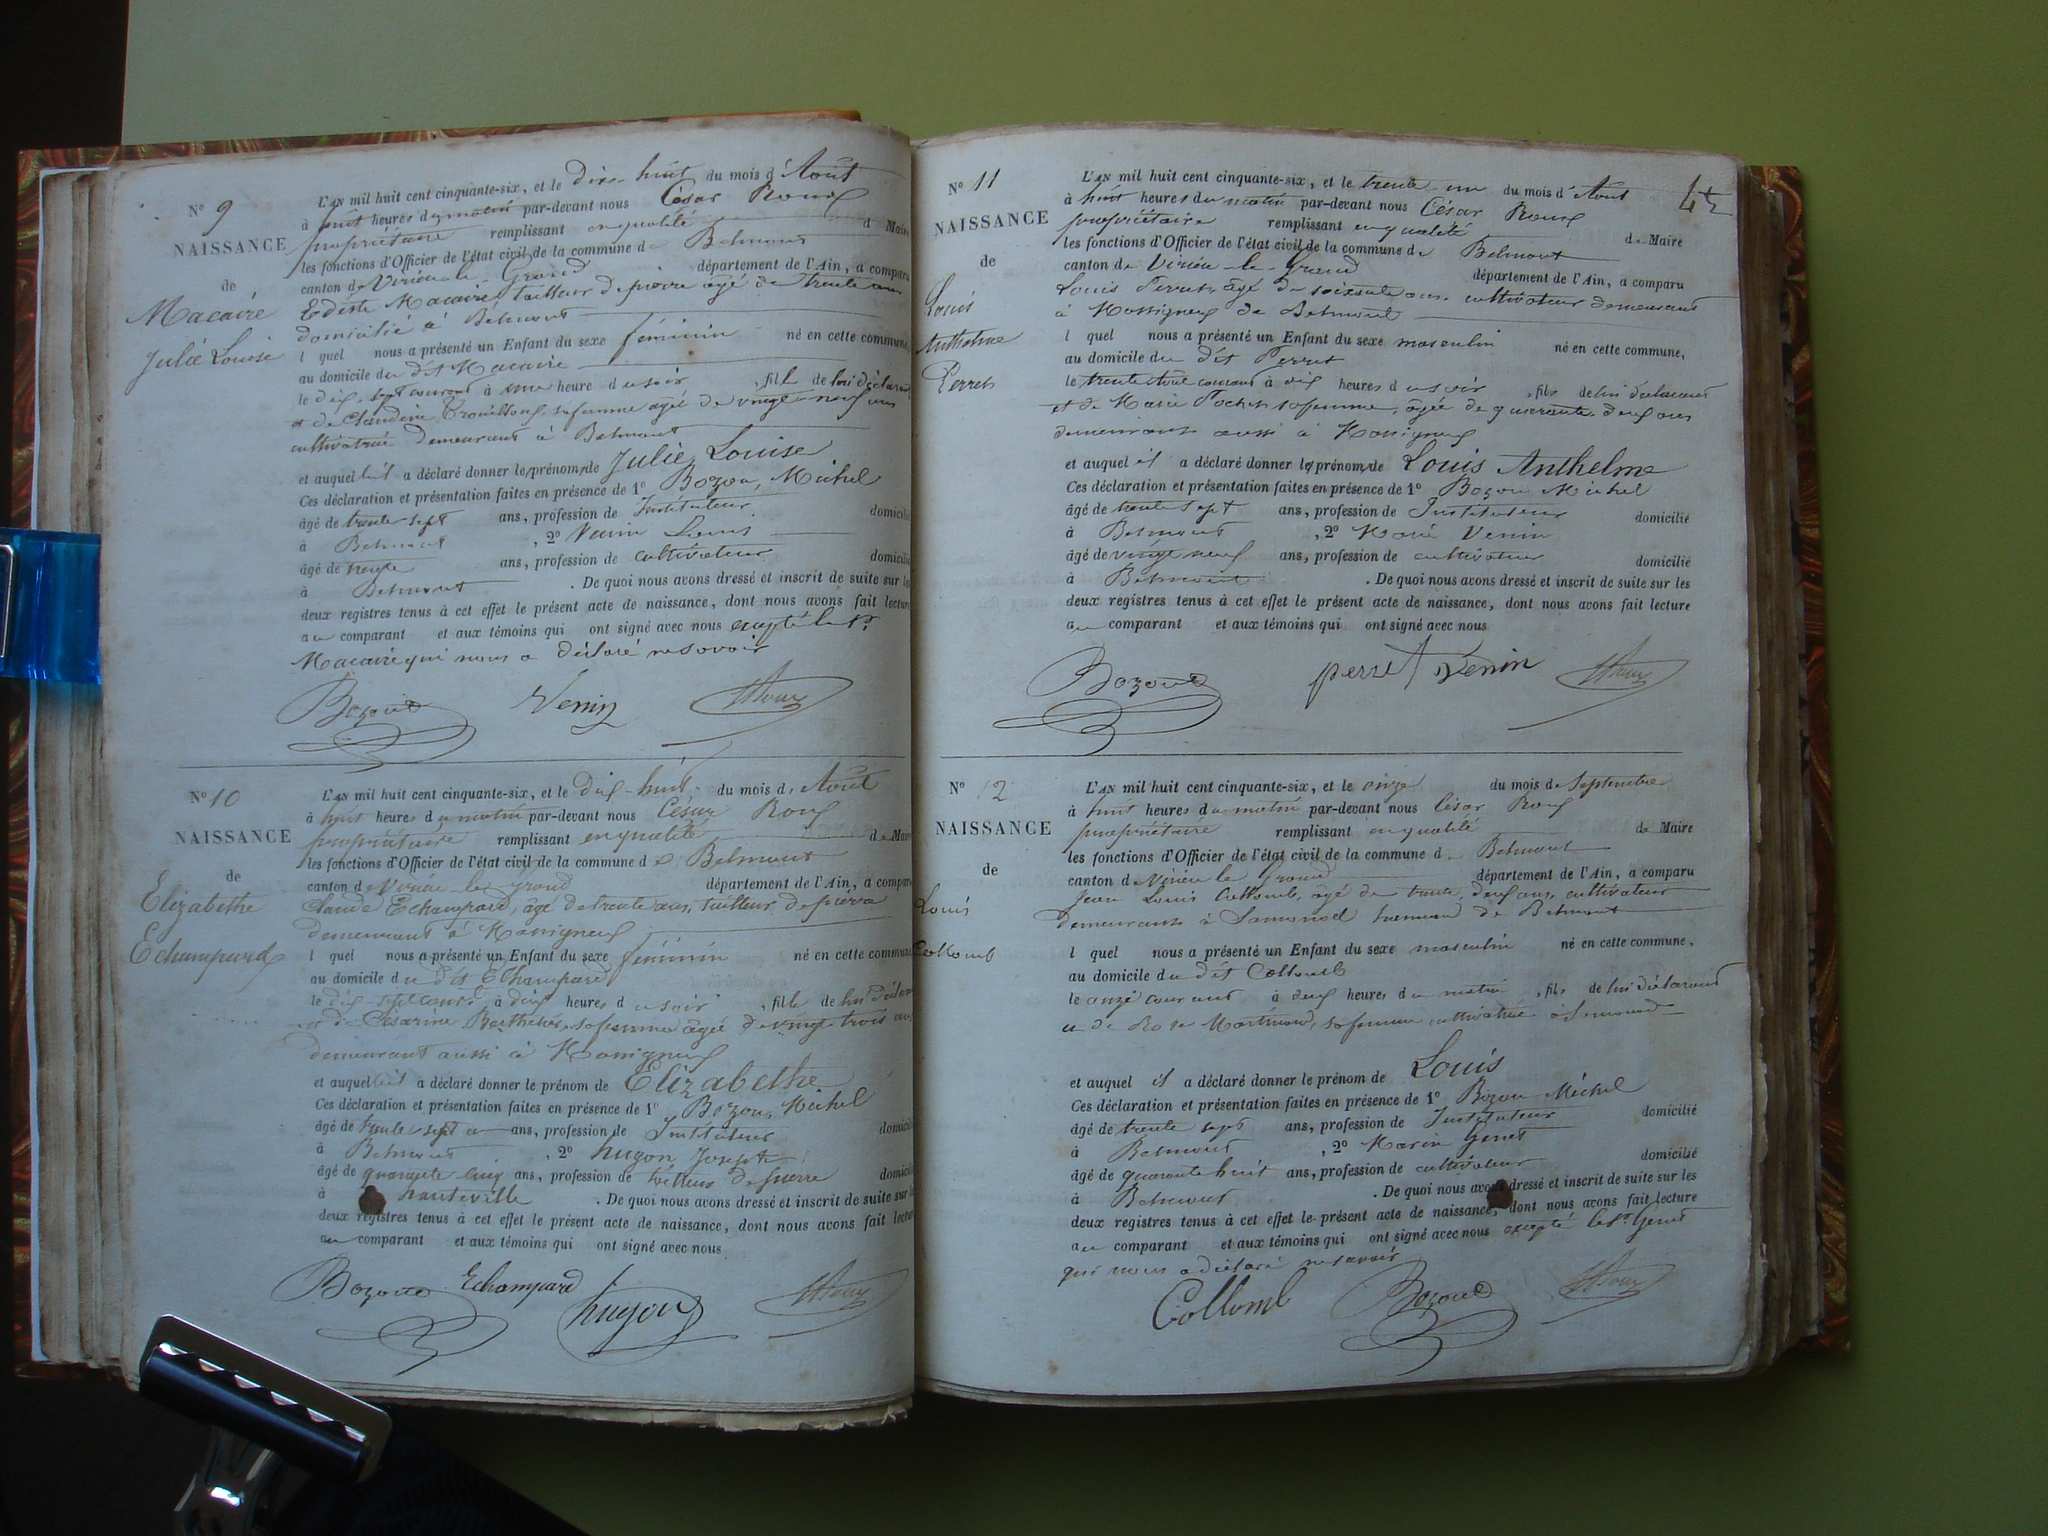 N° 9
NAISSANCE
de
Macaire
Julie Louise
L'AN mil huit cent cinquante-six, et le dix-huit du mois d'Août
à huit heures du matin par-devant nous César Roux
propriétaire remplissant en qualité de Maire
les fonctions d'Officier de l'état civil de la commune de Belmont
canton de Virieu-le-Grand département de l'Ain, a comparu
Edèste Macaire, tailleur de pierre âgé de trente ans
domicilié à Belmont
l quel nous a présenté un Enfant du sexe féminin né en cette commune,
au domicile du dit Macaire
le dix-sept courant à heure du soir, fille de lui déclarant
et de Claudine sa femme agée de vingt-neuf ans
cultivatrice demeurant à Belmont
et auquel il a déclaré donner les prénoms de Julie Louise
Ces déclaration et présentation faites en présence de 1° Bozon, Michel
âgé de trente-sept ans, profession de Instituteur domicilié
à Belmont, 2° Venin
âgé de trente ans, profession de cultivateur domicilié
à Belmont. De quoi nous avons dressé et inscrit de suite sur les
deux registres tenus à cet effet le présent acte de naissance, dont nous avons fait lecture
au comparant et aux témoins qui ont signé avec nous excepté le Sr
Macaire qui nous a déclaré ne savoir
Bozon Venin Roux
N° 10
NAISSANCE
de
Elizabethe
Echampard
L'AN mil huit cent cinquante-six, et le dix-huit du mois d'Août
à huit heures du matin par-devant nous César Roux
propriétaire remplissant en qualité de Maire
les fonctions d'Officier de l'état civil de la commune de Belmont
canton de Virieu-le-Grand département de l'Ain, a comparu
Claude Echampard, âgé de trente ans, tailleur de pierre
demeurant à Massigneux
l quel nous a présenté un Enfant du sexe féminin né en cette commune
au domicile du dit Echampard
le dix-sept courant à heures du soir, fille de lui déclarant
et de Césarine sa femme agée de vingt-trois ans
demeurant aussi à Massigneux
et auquel il a déclaré donner le prénom de Elizabethe
Ces déclaration et présentation faites en présence de 1° Bozon, Michel
âgé de trente-sept ans, profession de Instituteur domicilié
à Belmont, 2° hugon Joseph
âgé de quarante cinq ans, profession de de pierre domicilié
à hauteville. De quoi nous avons dressé et inscrit de suite sur les
deux registres tenus à cet effet le présent acte de naissance, dont nous avons fait lecture
au comparant et aux témoins qui ont signé avec nous.
Bozon Echampard hugon Roux
N° 11
NAISSANCE
de
Louis
Anthelme
Perret
L'AN mil huit cent cinquante-six, et le trente-un du mois d'Août
à huit heures du matin par-devant nous César Roux
propriétaire remplissant en qualité de Maire
les fonctions d'Officier de l'état civil de la commune de Belmont
canton de Virieu-le-Grand département de l'Ain, a comparu
Louis Perret, âgé de soixante ans, cultivateur demeurant
à Massigneux de Belmont
l quel nous a présenté un Enfant du sexe masculin né en cette commune,
au domicile du dit Perret
le trente courant à dix heures du soir, fils de lui déclarant
et de Marie Pochet sa femme, âgée de quarante-deux ans
demeurant aussi à Massigneux
et auquel il a déclaré donner les prénoms de Louis Anthelme
Ces déclaration et présentation faites en présence de 1° Bozon Michel
âgé de trente sept ans, profession de Instituteur domicilié
à Belmont, 2° Venin
âgé de vingt neuf ans, profession de cultivateur domicilié
à Belmont. De quoi nous avons dressé et inscrit de suite sur les
deux registres tenus à cet effet le présent acte de naissance, dont nous avons fait lecture
au comparant et aux témoins qui ont signé avec nous
Bozon perret Venin Roux
N° 12
NAISSANCE
de
Louis
Collomb
L'AN mil huit cent cinquante-six, et le onze du mois de Septembre
à huit heures du matin par-devant nous César Roux
propriétaire remplissant en qualité de Maire
les fonctions d'Officier de l'état civil de la commune de Belmont
canton de Virieu le Grand département de l'Ain, a comparu
Jean Louis Collomb, âgé de trente-deux ans, cultivateur
demeurant à hameau de Belmont
l quel nous a présenté un Enfant du sexe masculin né en cette commune,
au domicile du dit Collomb
le onze courant à deux heures du matin, fils de lui déclarant
et de Rose Martinand, sa femme, cultivatrice
et auquel il a déclaré donner le prénom de Louis
Ces déclaration et présentation faites en présence de 1° Bozon Michel
âgé de trente sept ans, profession de Instituteur domicilié
à Belmont, 2° Marin Genet
âgé de quarante huit ans, profession de cultivateur domicilié
à Belmont. De quoi nous avons dressé et inscrit de suite sur les
deux registres tenus à cet effet le présent acte de naissance, dont nous avons fait lecture
au comparant et aux témoins qui ont signé avec nous excepté le Sr Genet
qui nous a déclaré ne savoir
Collomb Bozon Roux